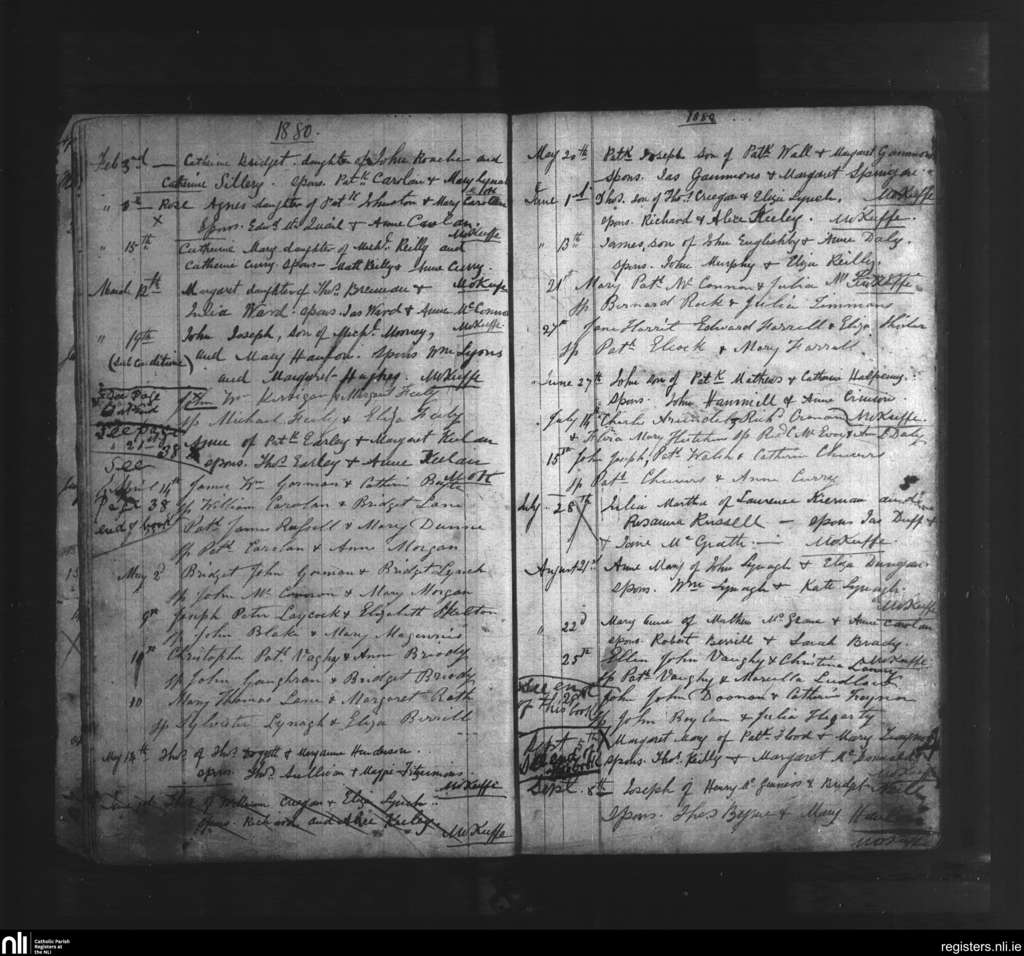 1880.
Feb 3rd — Catherine Bridget daughter of John Roache and
Catherine Sillery. Spons. Patk Carolan & Mary Lynah
" Rose Agnes daughter of Patk Johnston & Mary Caroline
X Spons. Edwd Mc Quail & Anne
McKeffe
" 15th Catherine Mary daughter of Michl. Reilly and
Catherine Curry. Spons — Matt Reilly & Anne Curry.
March 12th Margaret daughter of Thos. & McKeffe
Julia Ward. Spons. Jas Ward & Anne McConnon
McKeffe
" 19th John Joseph, son of Michl. Money,
(sub conditione) and Mary Hanlon. Spons Wm Lyons
and Margaret Hughes. McKeffe
See Page Wm Kerrigan & Margaret Feely
Sp Michael Feely & Eliza Feely
See page Anne of Patk Earley & Margaret Keelan
21st 38 X spons. Thos. Earley & Anne Keelan
See
April 14th James Wm Gorman & Cathrin
page 38 Sp William Carolan & Bridget Lane
end of book Patk James Russell & Mary Dunne
Sp Patk Carolan & Anne Morgan
May 2d Bridget John Gorman & Bridget Lynch
Sp John Mc Connon & Mary Morgan
9th Joseph Peter Laycock & Elizabeth Skelton
Sp John Blake & Mary Magennis
10th Christopher Patk Vaghy & Anne Broody
Sp John Gaughran & Bridget Briody
10 Mary Thomas Lane & Margaret Rath
Sp Sylvester Lynagh & Eliza Berrill
May 14th Thos. of Thos. & Maryanne Henderson.
spons. Thos. Sullivan & Magge Fitzsimons
McKeffe
Thos of William Creagan & Eliza Lynch
Spons. Richard and Alice Keeley
McKeffe
1880
May 20th Patk Joseph son of Patk Wall & Margaret Gammons
spons. Jas Gammons & Margaret
McKeffe
June 1st Thos. son of Thos. Creagan & Eliza Lynch,
spons. Richard & Alice Keeley. McKeffe.
" 13th James, son of John Englishby & Anne Daly.
Spons. John Murphy & Eliza Reilly.
McKeffe
21st Mary Patk Mc Connon & Julia
Sp Bernard Rock & Julia Timmons
27th Jane Harrit Edward Farrell & Eliza
Sp Patk Elcock & Mary Farrell
June 27th John son of Patk Mathews & Catherine Halpenny.
Spons. John Hammell & Anne
July Charles Richd McKeffe
& Mary Sp Richd Mc Evoy & Daly
15th John Joseph, Patk Walsh & Cathrin Cheevers
Sp Patk Cheevers & Anne Curry
July 28th Julia Martha of Laurence Kiernan and
Rosanne Russell — Spons Jas Duff &
& Jane McGrath — McKeffe
August 21st Anne Mary of John Lynagh & Eliza Dungan
spons. Wm Lynagh & Kate Lynagh.
McKeffe
" 22d Mary Anne of Mathew McGrane & Anne Carolan
spons. Robert Berrill & Sarah Brady.
McKeffe
25th Ellen John Vaughy & Christina
Sp Patk Vaughy & Marcella Ludlock
See end John John Doonan & Cathrin Traynor
of this book Sp John Boylan & Julia Hagarty
Sept 5th X Margaret Mary of Patk Flood & Mary
See end spons. Thos. Reilly & Margaret Mc Donald
Sept. 8th Joseph of Henry & Bridget Reilly
Spons. Thos Byrne & Mary
McKeffe
nli
Catholic Parish
Registers at
the NLI
registers.nli.ie